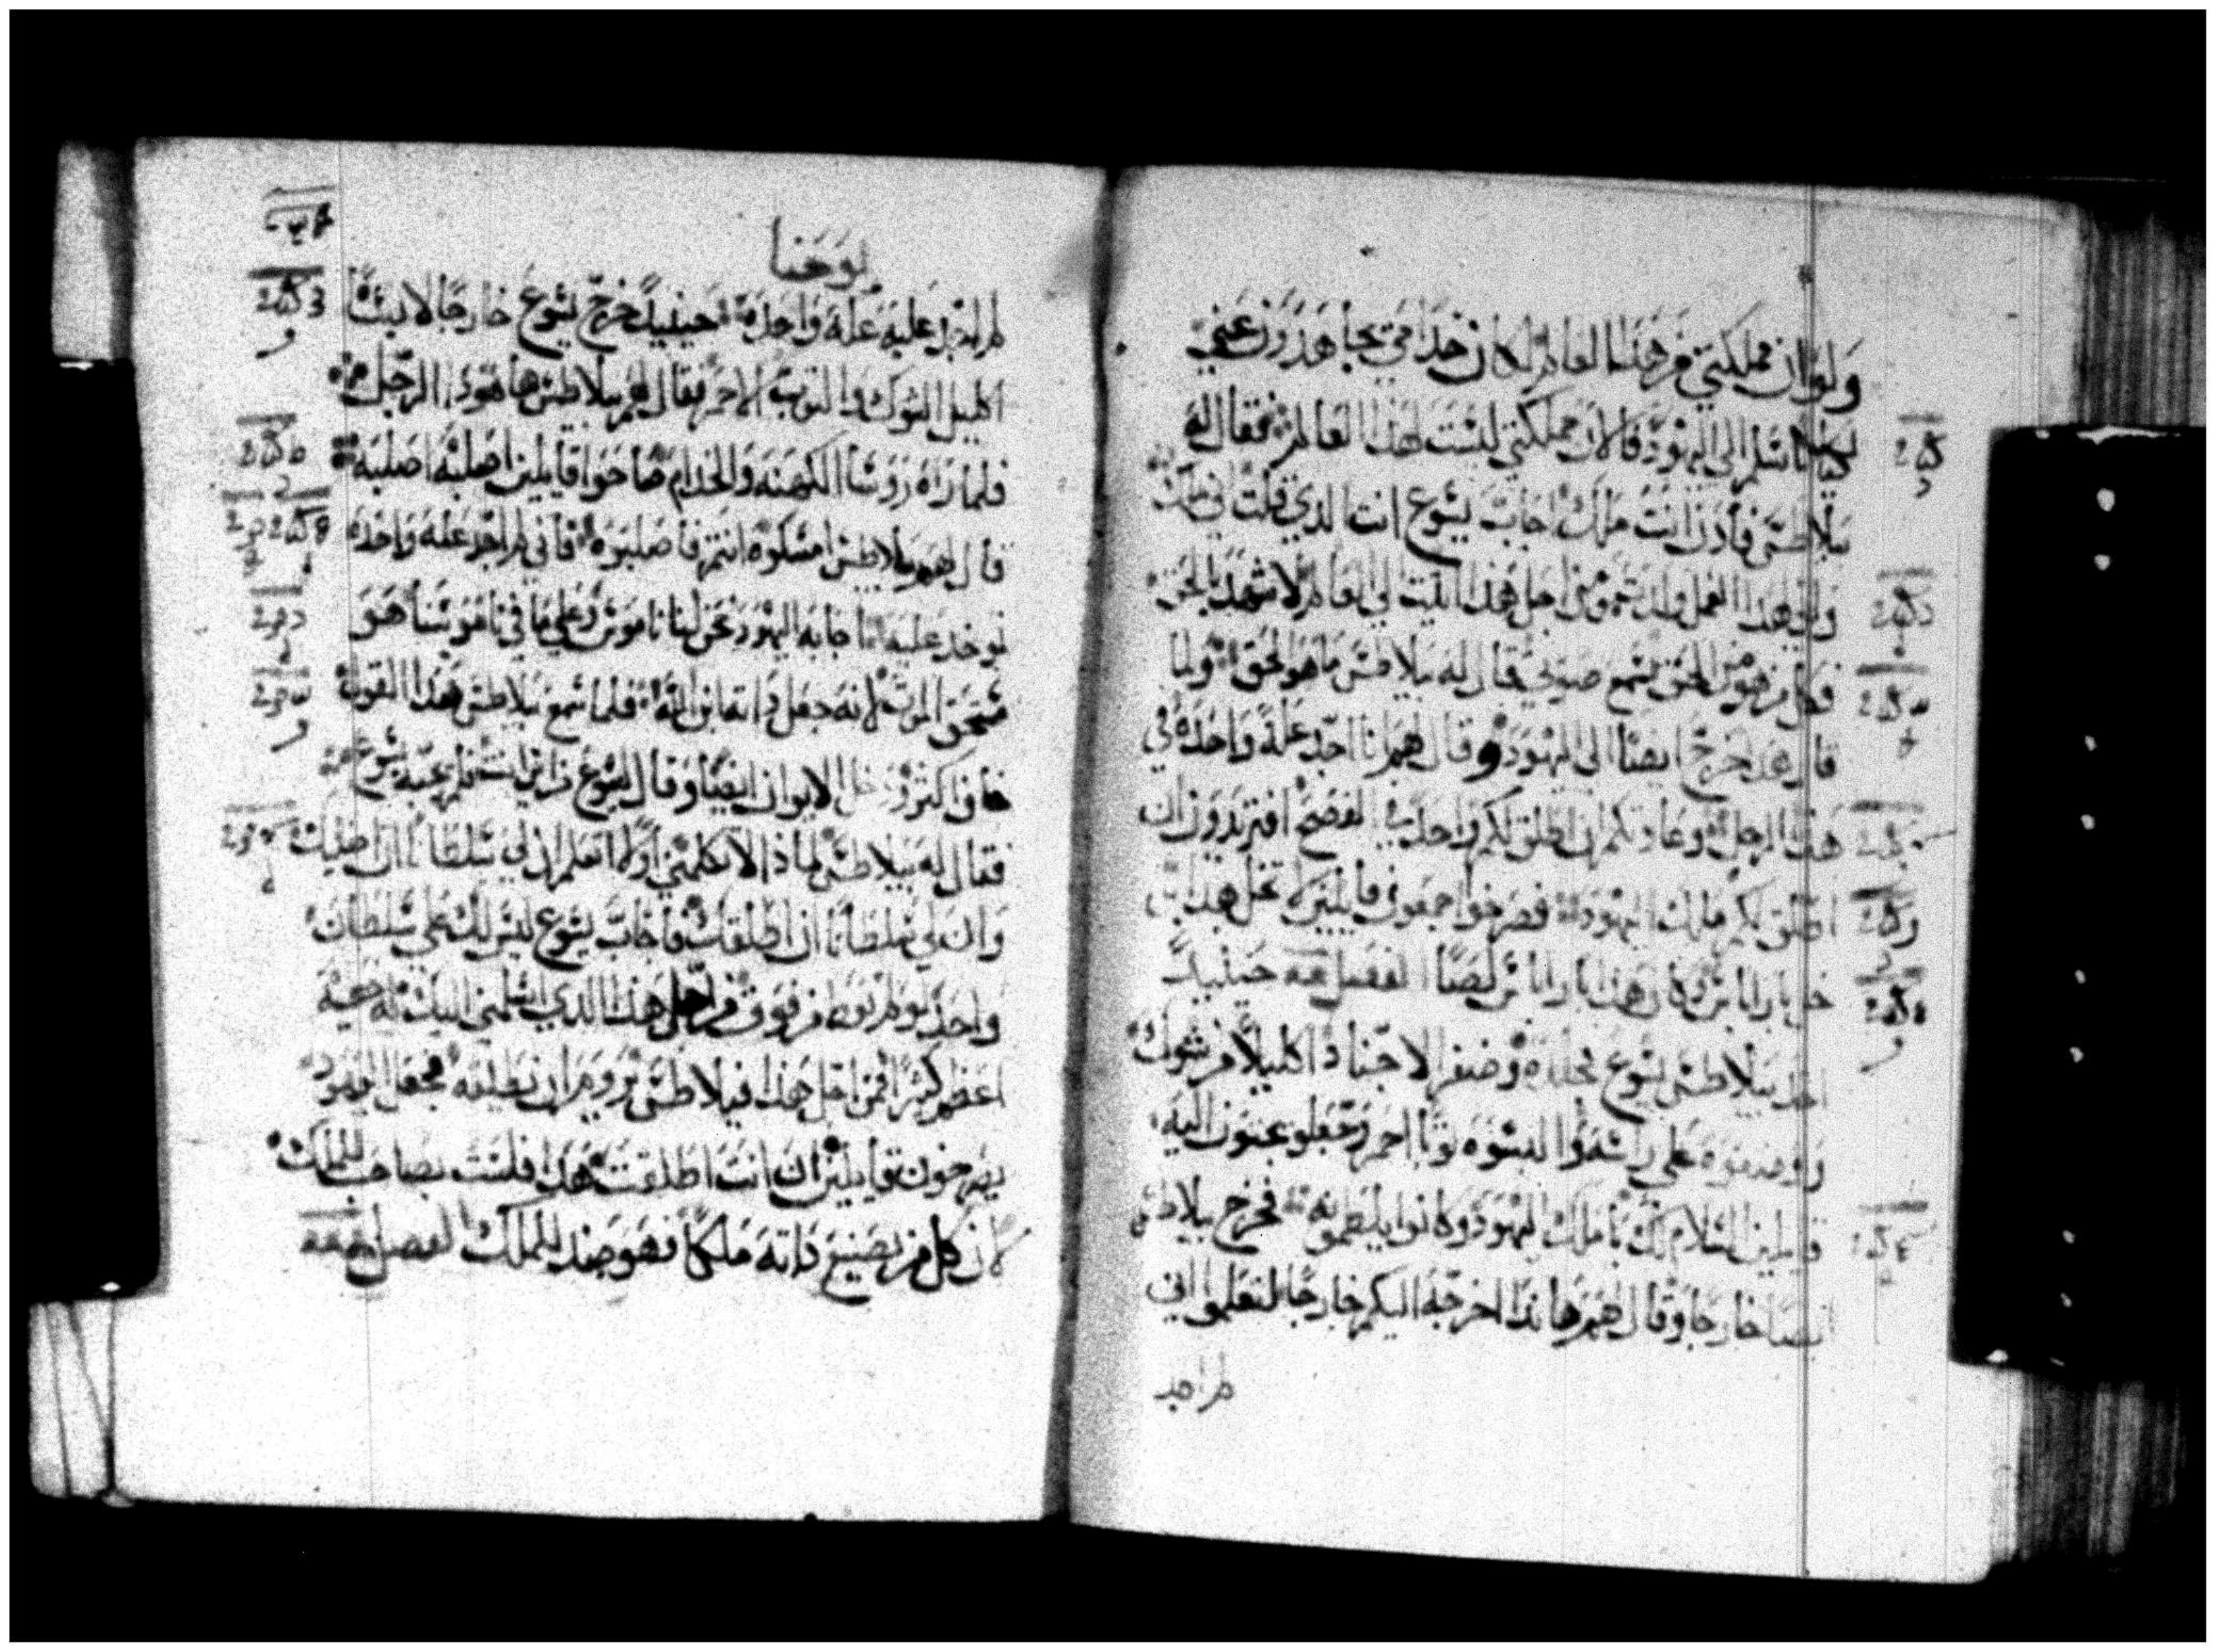 ولو ان مملكتي من هذا العالم لكان خدامي يجاهدون عني
ليلا اسلم الى اليهود فالان مملكتي ليست لهذا العالم فقال له
بيلاطس فاذن انت ملك اجاب يسوع انت الذي قلت اني ملك
ولهذا العمل ولدت ومن اجل هذا اتيت الى العالم لاشهد بالحق
فكل من هو من الحق يسمع صوتي قال له بيلاطس ما هو الحق ولما
قال هذا خرج ايضا الى اليهود وقال لهم انا اجد علة واحدة في
هذا الرجل وعادتكم ان اطلق لكم واحد في الفصح افتريدون ان
اطلق لكم ملك اليهود فصرخوا جمعون قايلين لا تخل هذا
خل باراباس وكان هذا باراباس لصا الفصل حينيذ
اخذ بيلاطس يسوع فجلده وضفر الاجناد اكليلا من شوك
ووضعوه على راسه والبسوه ثوبا احمر وجعلو يجيون اليه
قايلين السلام لك يا ملك اليهود وكانوا يلطمونه فخرج بيلاطس
ايضا خارجا وقال لهم هاندا اخرجه اليكم خارجا لتعلموا اني
لم اجد
يوحنا
لم اجد عليه علة واحدة حينيذ خرج يسوع خارجا لابسا
اكليل الشوك والتوب الاحمر فقال لهم بيلاطس ها هودا الرجل
فلما راه روسا الكهنه والخدام صاحوا قايلين اصلبه اصلبه
قال لهم بيلاطس امسكوه انتم فاصلبوه فاني لم اجد علة واحدة
توخد عليه اجابه اليهود نحن لنا ناموس وعلى ما في ناموسنا هو
مستحق الموت لانه جعل داته ابن الله فلما سمع بيلاطس هذا القول
خاف اكتر ودخل الايوان ايضا وقال ليسوع من اين انت فلم يجبه يسوع
فقال له بيلاطس لماذا لا تكلمني اولا تعلم ان لي سلطانا ان اصلبك
وان لي سلطانا ان اطلقك فاجاب يسوع ليس لك علي سلطان
واحد لو لم تعط من فوق من اجل هذا الذي اسلمني اليك له خطية
اعظم كثيرا فمن اجل هذا فيلاطس يروم ان يطلقه فجعل اليهود
يصرخون قايلين ان انت اطلقت هذا فلست بصاحب للملك
لان كل من يصنع داته ملكا فهو ضد للملك الفصل